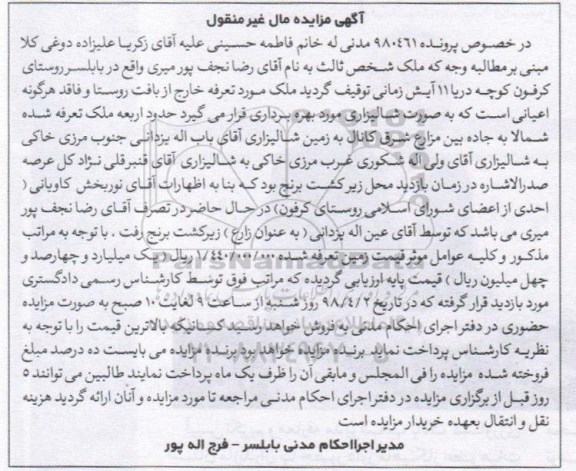 آگهی مزایده مال غیر منقول
در خصوص پرونده ۹۸۰۴۶۱ مدنی له خانم فاطمه حسینی علیه آقای زکریا علیزاده دوغی کلا
مبنی بر مطالبه وجه که ملک شخص ثالث به نام آقای رضا نجف پور میری واقع در بابلسر روستای
کرفون کوچه دریا ۱۱ آیش زمانی توقیف گردید ملک مورد تعرفه خارج از بافت روستا و فاقد هرگونه
اعیانی است که به صورت شالیزاری مورد بهره برداری قرار می گیرد حدود اربعه ملک تعرفه شده
شمالا به جاده بین مزارع شرق کانال به زمین شالیزاری آقای باب اله یزدانی جنوب مرزی خاکی
به شالیزاری آقای ولی اله شکوری غرب مرزی خاکی به شالیزاری آقای قنبرقلی نژاد کل عرصه
صدرالاشاره در زمان بازدید محل زیر کشت برنج بود که بنا به اظهارات آقای نوربخش کاویانی (
احدی از اعضای شورای اسلامی روستای کرفون) در حال حاضر در تصرف آقای رضا نجف پور
میری می باشد که توسط آقای عین اله یزدانی ( به عنوان زارع ) زیرکشت برنج رفت . با توجه به مراتب
مذکور و کلیه عوامل موثر قیمت زمین تعرفه شده ۱/۴۴۰/۰۰۰/۰۰۰ ریال (یک میلیارد و چهارصد و
چهل میلیون ریال ) قیمت پایه ارزیابی گردیده که مراتب فوق توسط کارشناس رسمی دادگستری
مورد بازدید قرار گرفته که در تاریخ ۹۸/۴/۲ روز شنبه از ساعت ۹ لغایت ۱۰ صبح به صورت مزایده
حضوری در دفتر اجرای احکام مدنی به فروش خواهد رسید کسانیکه بالاترین قیمت را با توجه به
نظریه کارشناس پرداخت نماید برنده مزایده خواهد بود برنده مزایده می بایست ده درصد مبلغ
فروخته شده مزایده را فی المجلس و مابقی آن را ظرف یک ماه پرداخت نمایند طالبین می توانند ۵
روز قبل از برگزاری مزایده در دفتر اجرای احکام مدنی مراجعه تا مورد مزایده و آنان ارائه گردید هزینه
نقل و انتقال بعهده خریدار مزایده است
مدیر اجرا احکام مدنی بابلسر - فرج اله پور
ParsNamadData